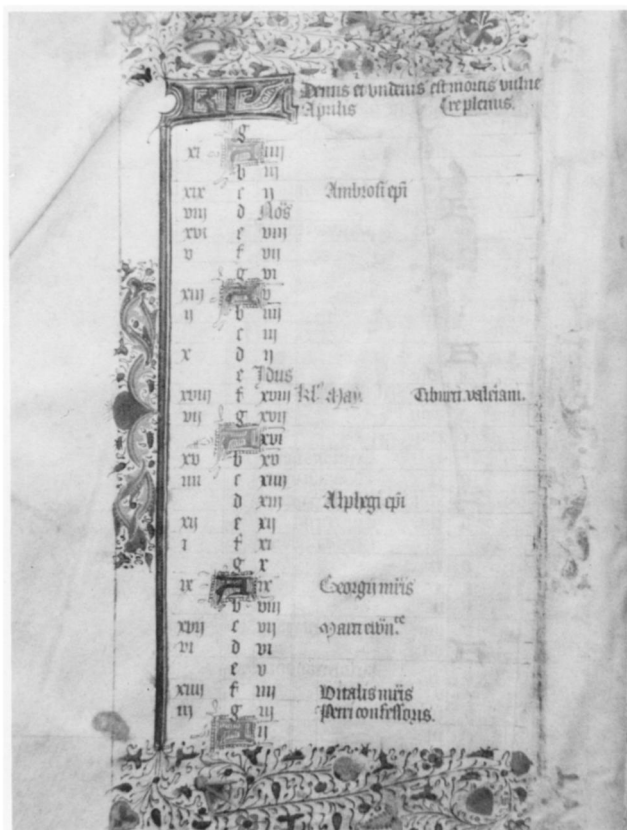 KL Denus et undenus est mortis vulne
Aprilis re plenus.
g
xi A iiij
b iij
xix c ij Ambrosi epi
viij d Nos
xvi e viij
v f vij
g vi
xiij A v
ij b iiij
c iij
x d ij
e Idus
xviij f xviij kl Maij. Tiburci. valeriani.
vij g xvij
A xvi
xv b xv
iiij c xiiij
d xiij Alphegi epi
xij e xij
i f xi
g x
ix A ix Georgii mris
b viij
xvij c vij Marci
vi d vi
e v
xiiij f iiij Vitalis mris
iij g iij Petri confessoris.
A ij